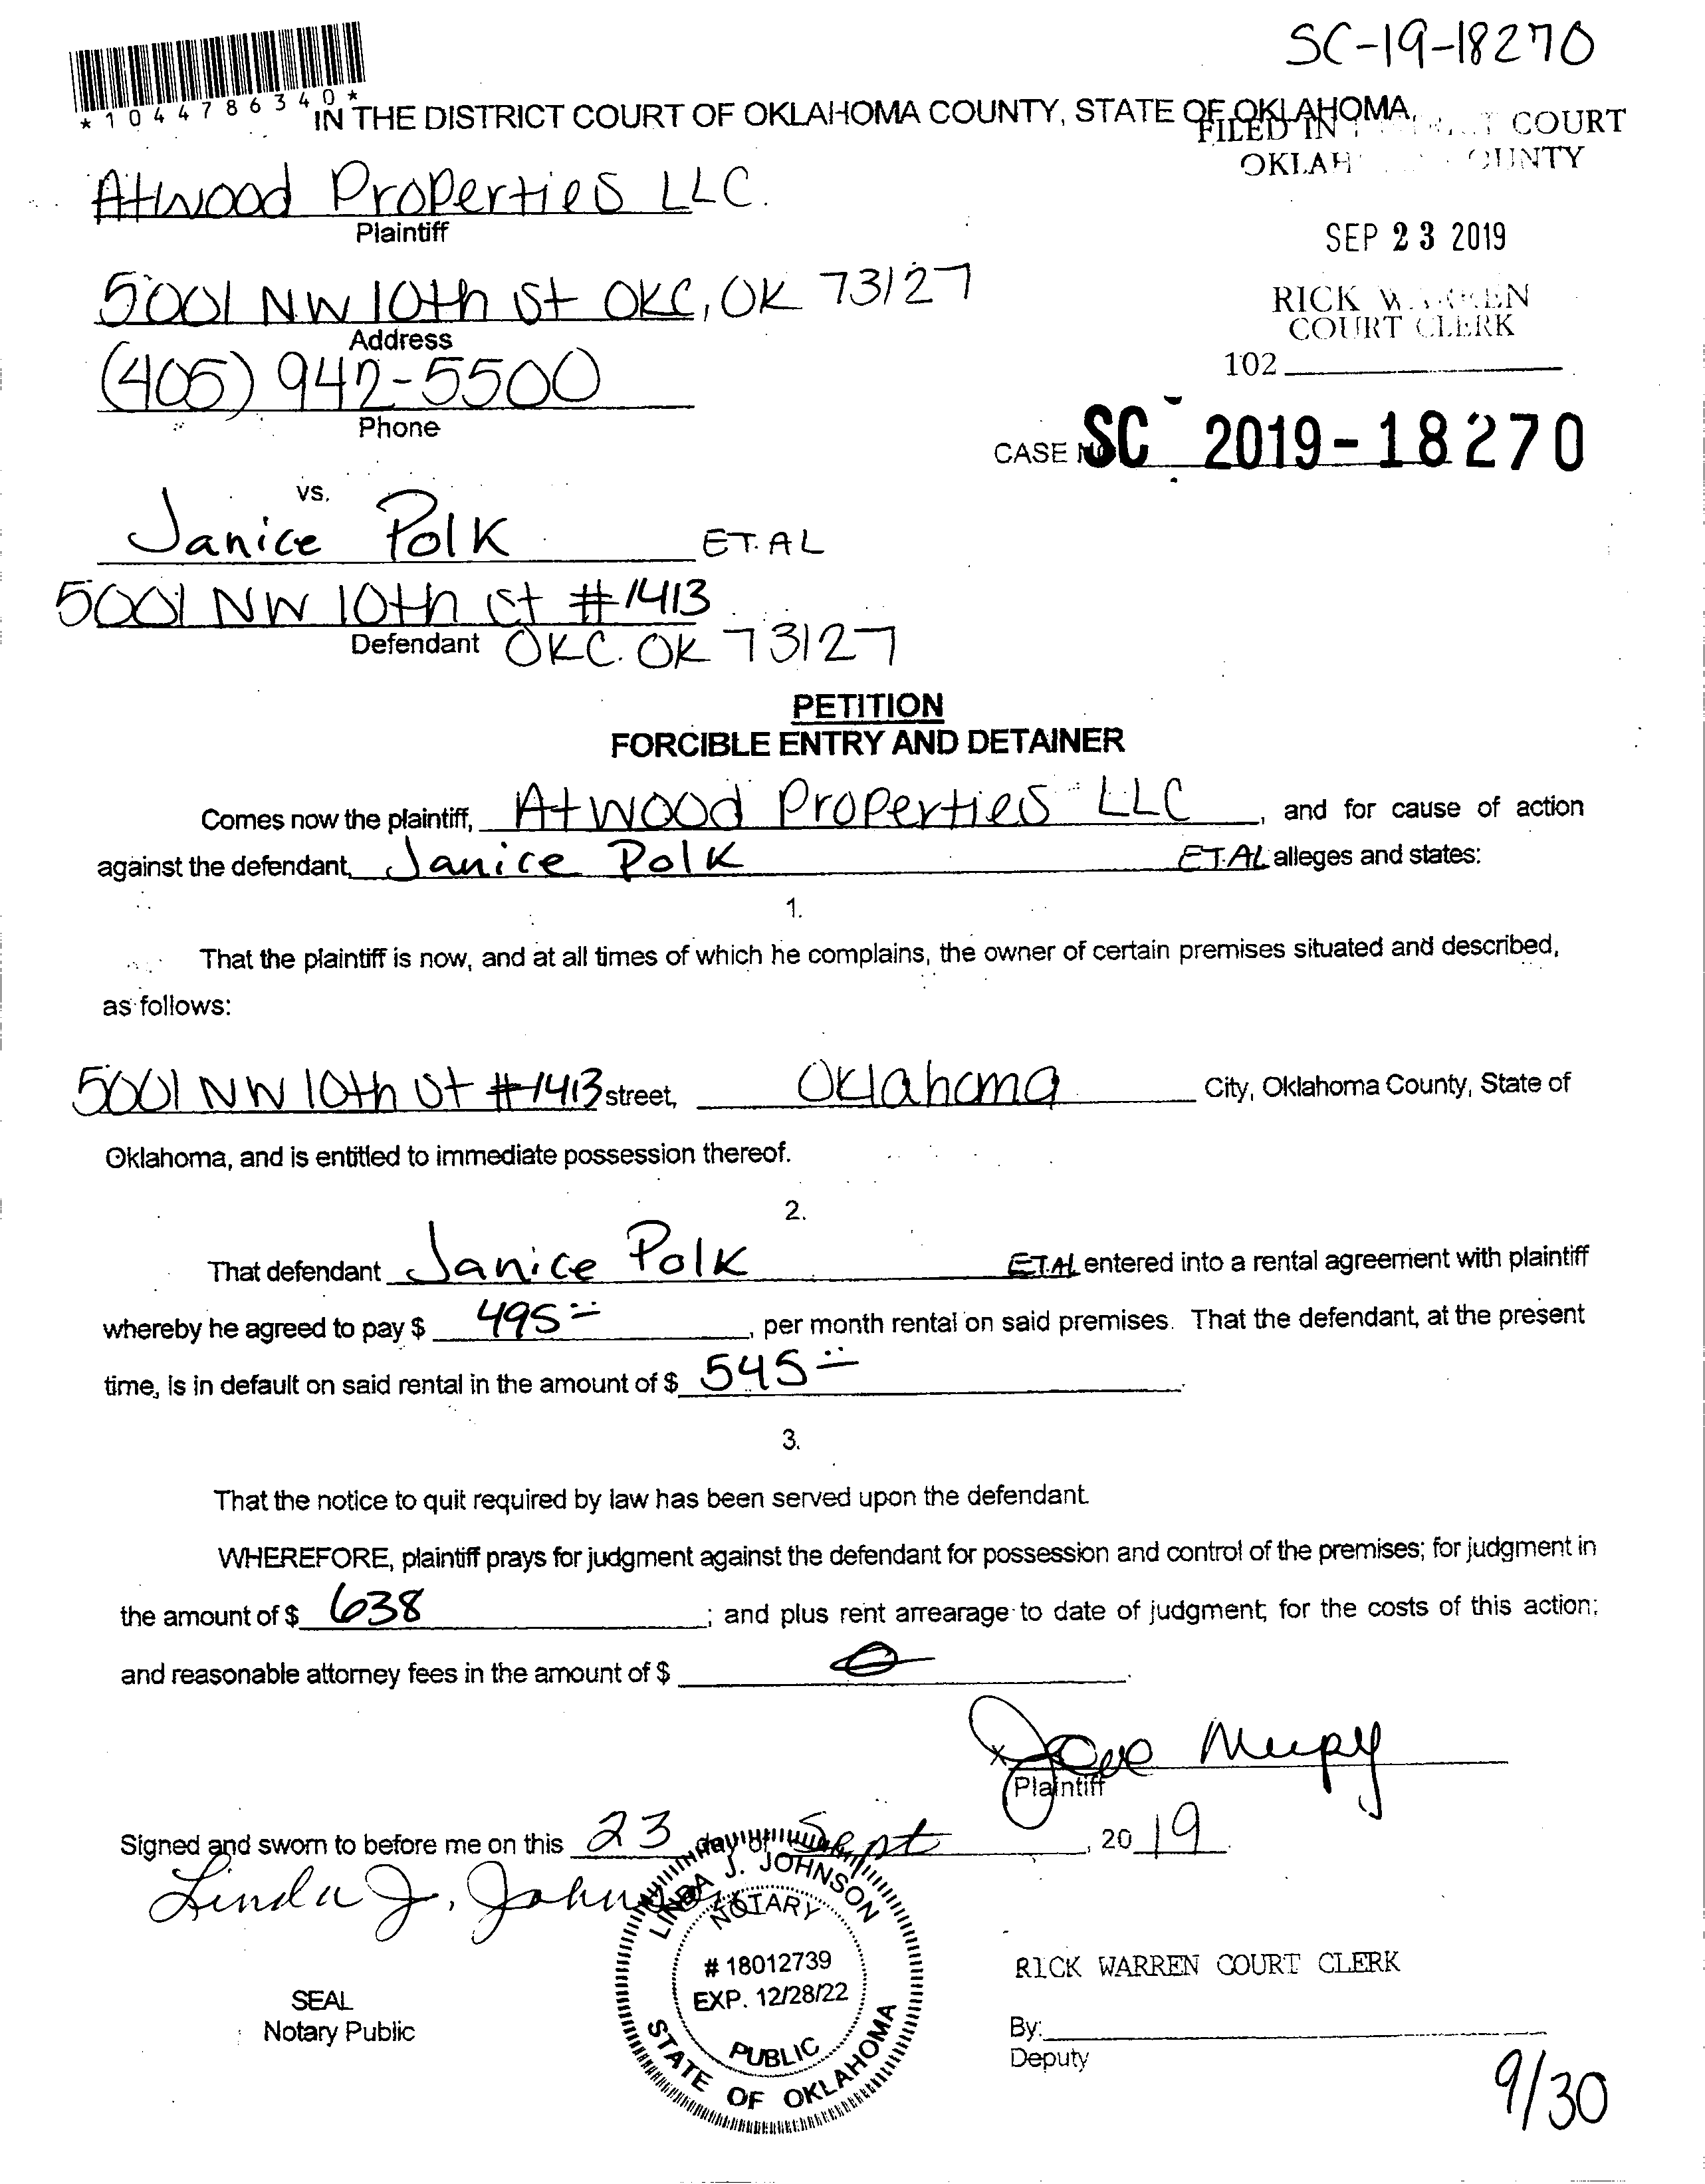 SC-19-18270
*1044786340*
IN THE DISTRICT COURT OF OKLAHOMA COUNTY, STATE OF OKLAHOMA
FILED IN COURT
OKLAH OUNTY
Atwood Properties LLC.
Plaintiff
SEP 23 2019
5001 NW 10th St OKC, OK 73127
Address
RICK WARREN
COURT CLERK
(405) 942-5500
102
Phone
CASE NO. SC - 2019-18270
vs.
Janice Polk ET.AL
5001 NW 10th St #1413
Defendant OKC. OK 73127
PETITION
FORCIBLE ENTRY AND DETAINER
Comes now the plaintiff, Atwood Properties LLC, and for cause of action
against the defendant, Janice Polk ET.AL alleges and states:
1.
That the plaintiff is now, and at all times of which he complains, the owner of certain premises situated and described,
as follows:
5001 NW 10th St #1413 street, Oklahoma City, Oklahoma County, State of
Oklahoma, and is entitled to immediate possession thereof.
2.
That defendant Janice Polk ET.AL entered into a rental agreement with plaintiff
whereby he agreed to pay $ 495, per month rental on said premises. That the defendant, at the present
time, is in default on said rental in the amount of $ 545.
3.
That the notice to quit required by law has been served upon the defendant.
WHEREFORE, plaintiff prays for judgment against the defendant for possession and control of the premises; for judgment in
the amount of $ 638; and plus rent arrearage to date of judgment; for the costs of this action;
and reasonable attorney fees in the amount of $ 0.
x
Plaintiff
Signed and sworn to before me on this 23 day of Sept, 2019.
Linda J. Johnson
LINDA J. JOHNSON
NOTARY
# 18012739
EXP. 12/28/22
PUBLIC
STATE OF OKLAHOMA
SEAL
Notary Public
RICK WARREN COURT CLERK
By:
Deputy
9/30